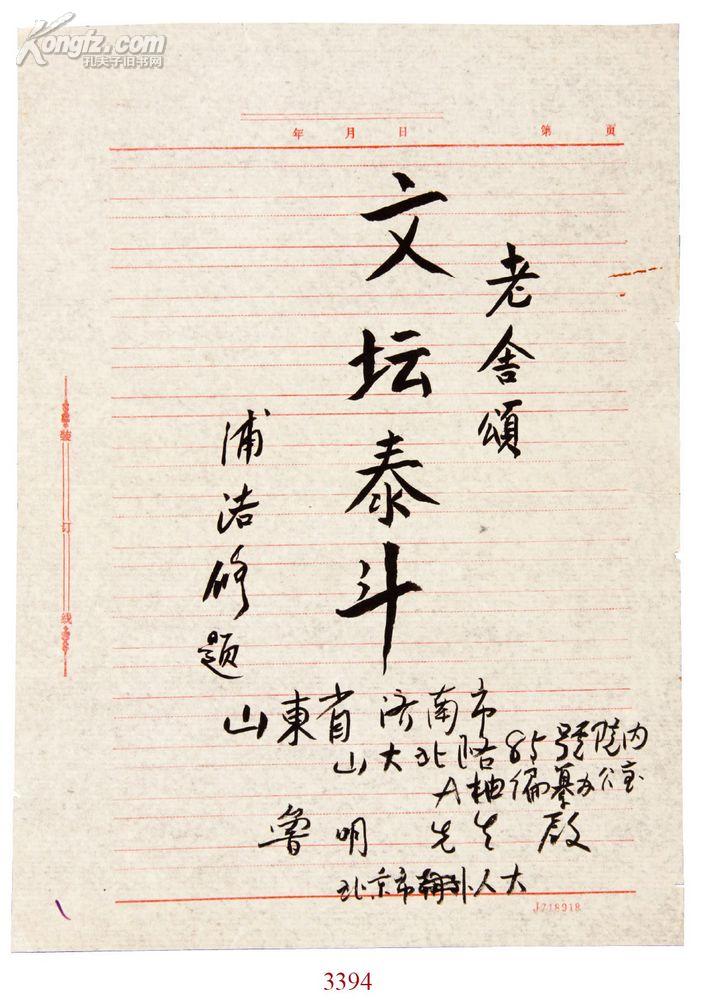 Kongfz.com
孔夫子旧书网
年 月 日 第 页
老舍頌
文坛泰斗
浦洁修题
装订线
山東省 济南市
山大北路85號院内
编纂办公室
魯明 先生 啟
北京市 人大
J718918
3394